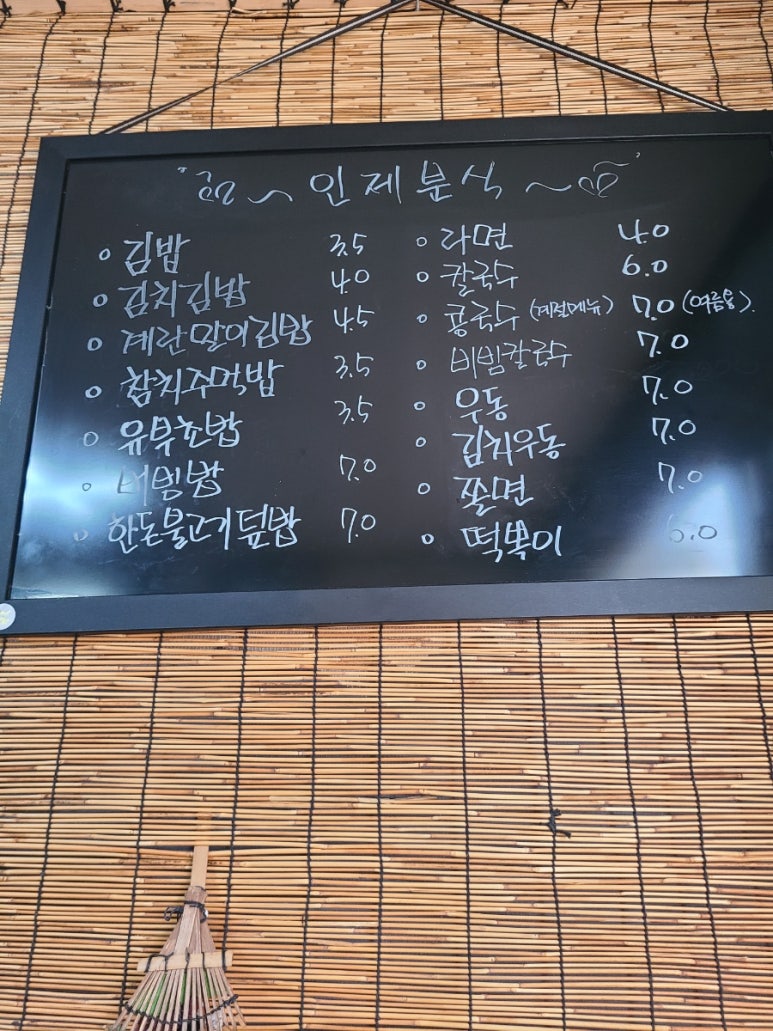 인제분식
김밥 3.5
김치김밥 4.0
계란말이김밥 4.5
참치주먹밥 3.5
유부초밥 3.5
비빔밥 7.0
한돈불고기덮밥 7.0
라면 4.0
칼국수 6.0
콩국수 (계절메뉴) 7.0 (여름용).
비빔칼국수 7.0
우동 7.0
김치우동 7.0
쫄면 7.0
떡볶이 6.0